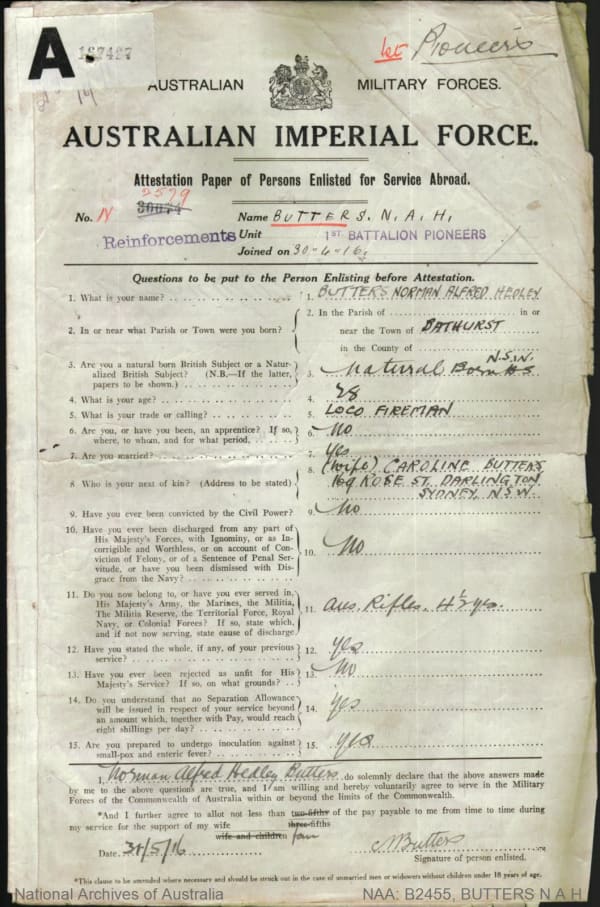 A
1st Pioneers
AUSTRALIAN MILITARY FORCES.
AUSTRALIAN IMPERIAL FORCE.
Attestation Paper of Persons Enlisted for Service Abroad.
2579
No. N 30074 Name BUTTERS. N. A. H.
Reinforcements Unit 1ST. BATTALION PIONEERS
Joined on 30-4-16.
Questions to be put to the Person Enlisting before Attestation.
1. What is your name? 1. BUTTERS NORMAN ALFRED HEDLEY
2. In or near what Parish or Town were you born? 2. In the Parish of in or
near the Town of BATHURST
in the County of N.S.W.
3. Are you a natural born British Subject or a Natur-
alized British Subject? (N.B.—If the latter, 3. Natural Born
papers to be shown.)
4. What is your age? 4. 28
5. What is your trade or calling? 5. LOCO FIREMAN
6. Are you, or have you been, an apprentice? If so, 6. No
where, to whom, and for what period.
7. Are you married? 7. Yes
8. Who is your next of kin? (Address to be stated) 8. (Wife) CAROLINE BUTTERS
169 ROSE ST. DARLINGTON
SYDNEY. N.S.W.
9. Have you ever been convicted by the Civil Power? 9. No
10. Have you ever been discharged from any part of
His Majesty's Forces, with Ignominy, or as In-
corrigible and Worthless, or on account of Con-
viction of Felony, or of a Sentence of Penal Ser- 10. No
vitude, or have you been dismissed with Dis-
grace from the Navy?
11. Do you now belong to, or have you ever served in,
His Majesty's Army, the Marines, the Militia,
The Militia Reserve, the Territorial Force, Royal 11. Aus. Rifles. 4½ yrs.
Navy, or Colonial Forces? If so, state which,
and if not now serving, state cause of discharge
12. Have you stated the whole, if any, of your previous 12. Yes
service?
13. Have you ever been rejected as unfit for His 13. No
Majesty's Service? If so, on what grounds?
14. Do you understand that no Separation Allowance
will be issued in respect of your service beyond 14. Yes
an amount which, together with Pay, would reach
eight shillings per day?
15. Are you prepared to undergo inoculation against 15. Yes
small-pox and enteric fever?
I, Norman Alfred Hedley Butters do solemnly declare that the above answers made
by me to the above questions are true, and I am willing and hereby voluntarily agree to serve in the Military
Forces of the Commonwealth of Australia within or beyond the limits of the Commonwealth.
*And I further agree to allot not less than two-fifths of the pay payable to me from time to time
three-fifths
during my service for the support of my wife
wife and children
Date 31/5/16 N Butters
Signature of person enlisted.
*This clause to be amended where necessary and should be struck out in the case of unmarried men or widowers without children under 18 years of age.
National Archives of Australia NAA: B2455, BUTTERS N A H